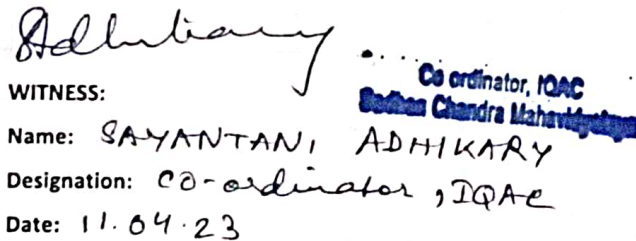 SAdhikary
Co ordinator, IQAC
Sadhan Chandra Mahavidyalaya
WITNESS:
Name: SAYANTANI ADHIKARY
Designation: CO-ordinator, IQAC
Date: 11.04.23